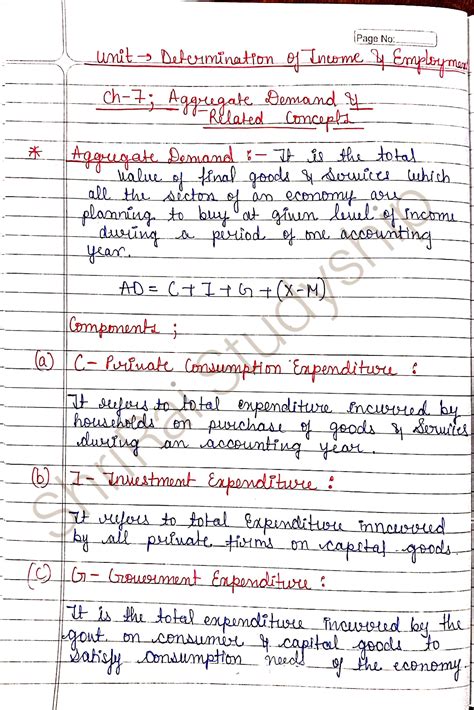 Page No:
Unit → Determination of Income & Employment
Ch-7; Aggregate Demand &
Related Concepts
* Aggregate Demand :- It is the total
value of final goods & Services which
all the sectors of an economy are
planning to buy at given level of income
during a period of one accounting
year.
AD = C + I + G + (X-M)
Components ;
(a) C - Private Consumption Expenditure :
It refers to total expenditure incurred by
households on purchase of goods & Services
during an accounting year.
(b) I - Investment Expenditure :
It refers to total Expenditure inncurred
by all private firms on capital goods.
(C) G - Government Expenditure :
It is the total expenditure incurred by the
govt on consumer & capital goods to
satisfy consumption needs of the economy.
ShriRai Studyship